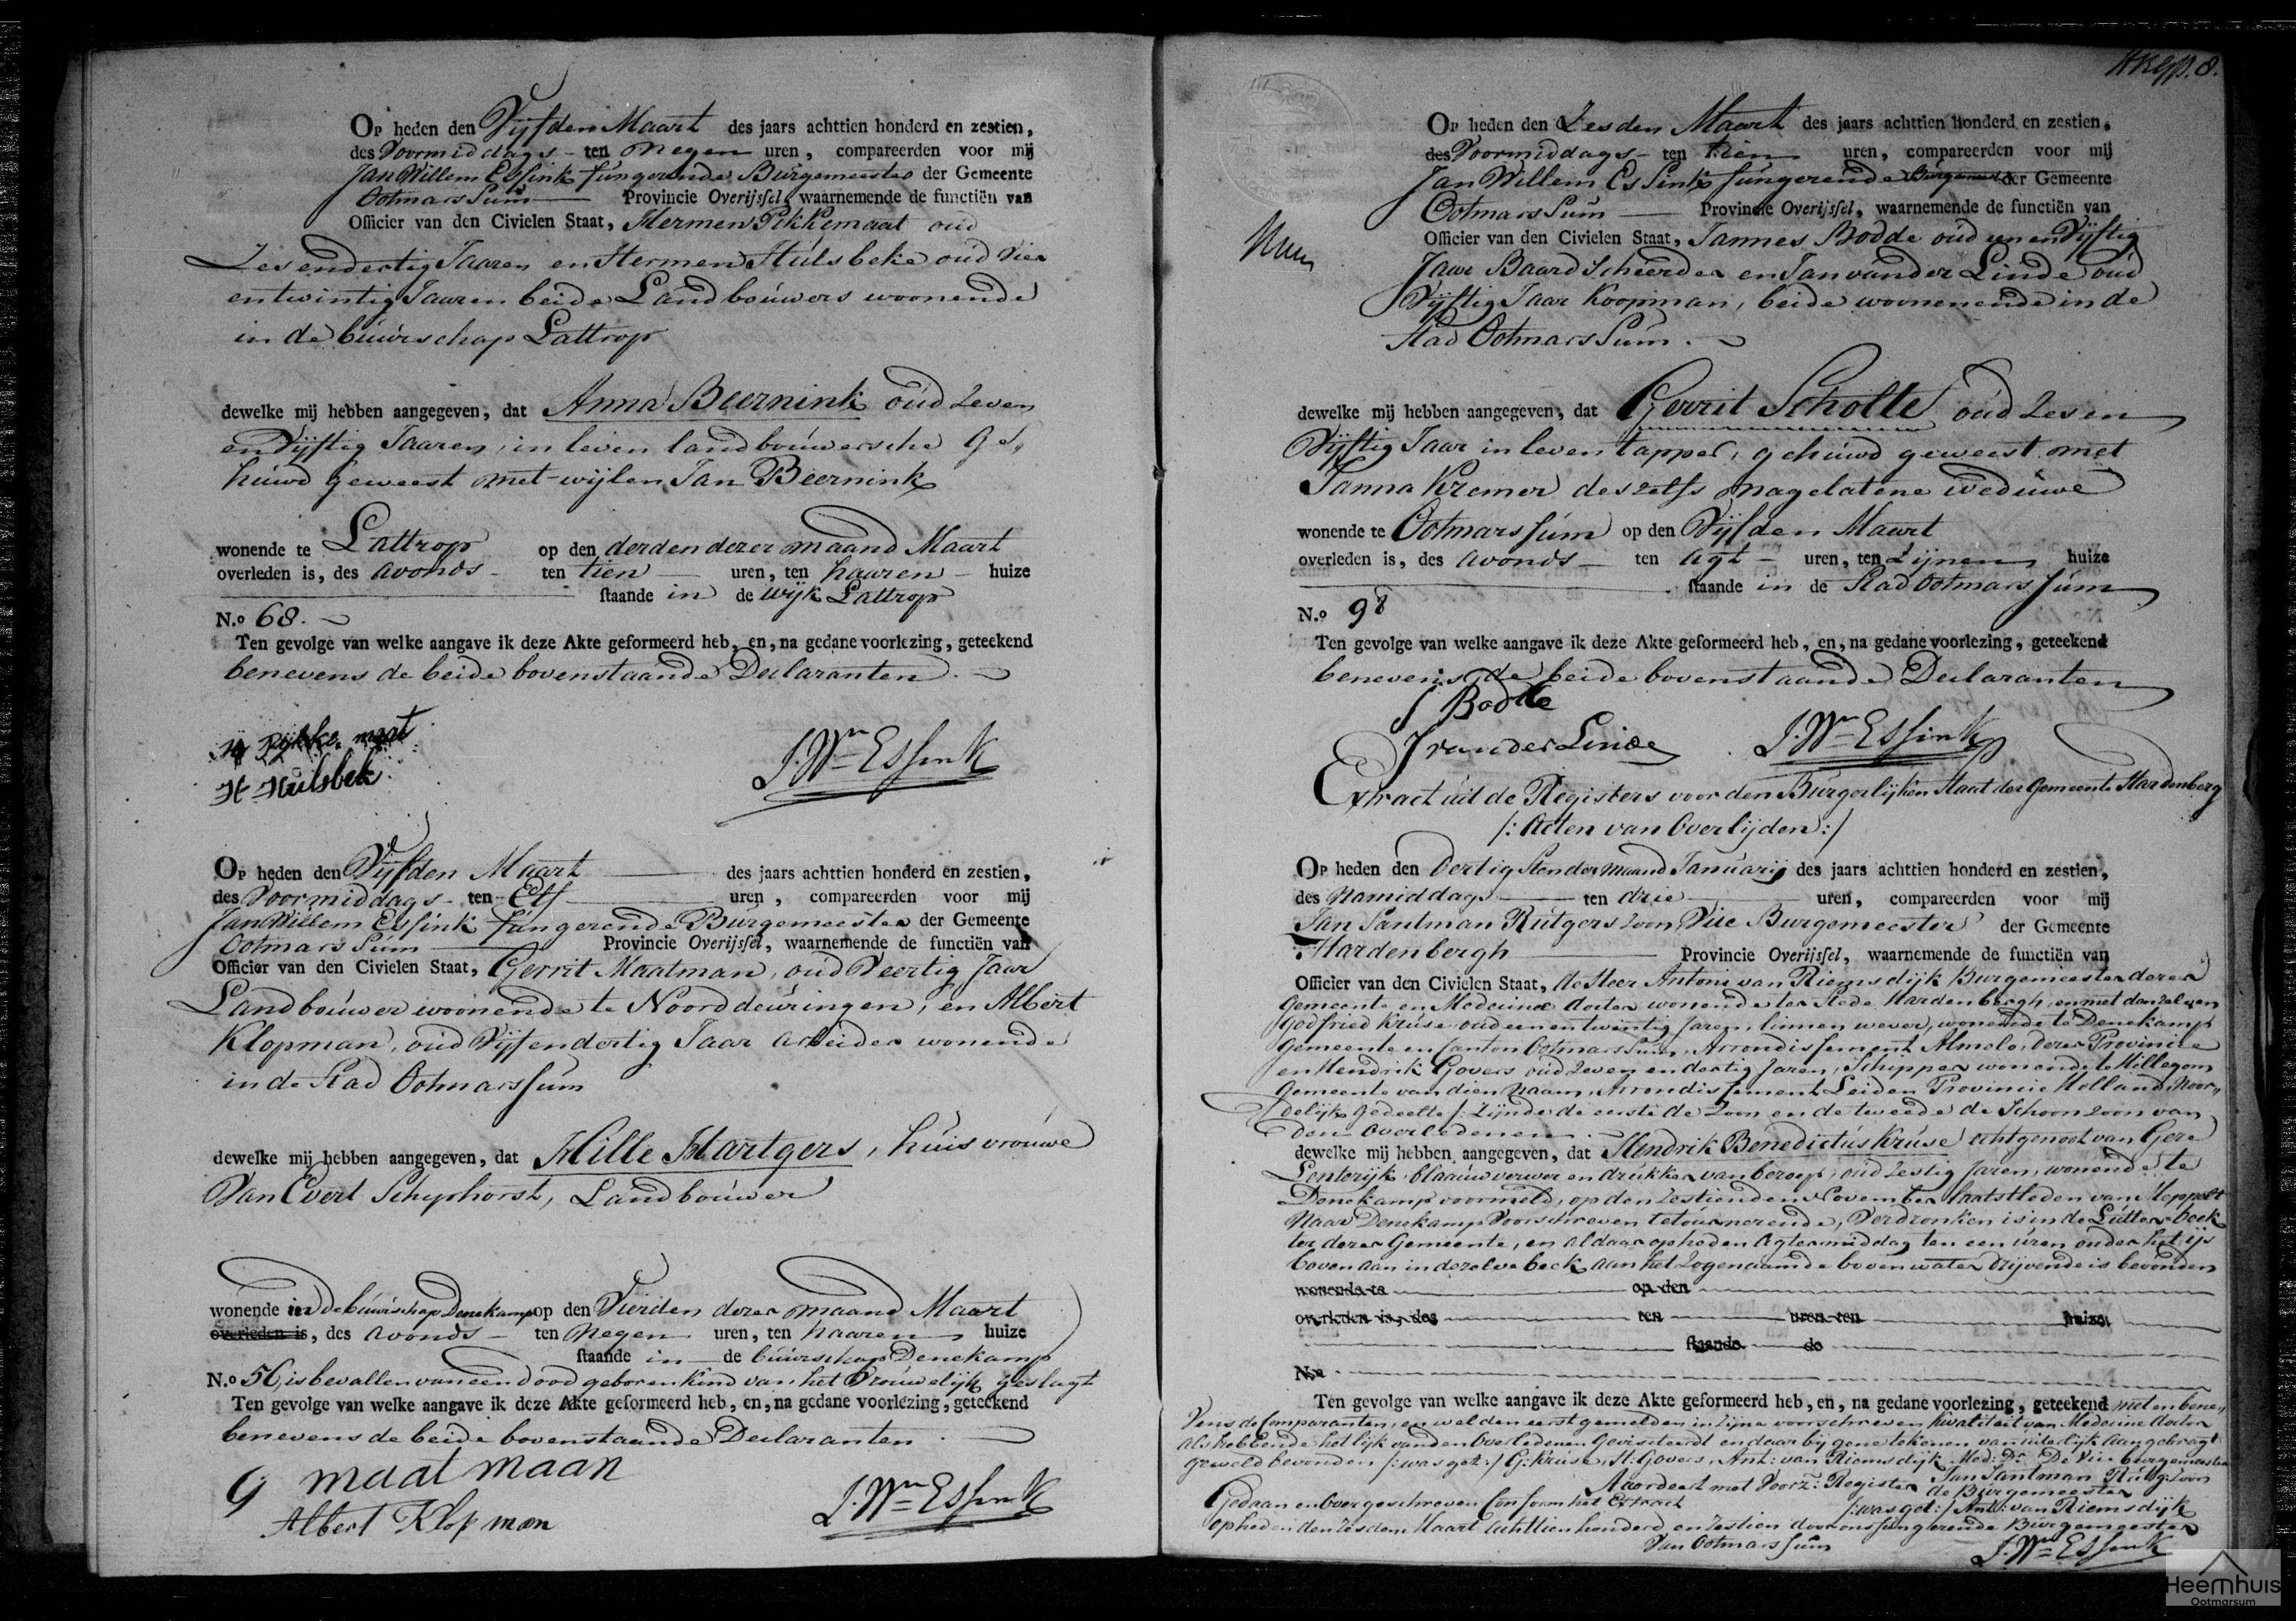 Op heden den Vyfden Maart des jaars achttien honderd en zestien,
des Voormiddags - ten Negen uren, compareerden voor mij
Jan Willem Essink fungerende Burgemeester der Gemeente
Ootmarssum Provincie Overijssel, waarnemende de functiën van
Officier van den Civielen Staat, Hermen Pikkemaat oud
Zes endertig Jaaren en Hermen Hulsbeke oud Vier
entwintig Jaaren beide Landbouwers woonende
in de buurschap Lattrop
dewelke mij hebben aangegeven, dat Anna Beernink oud Zeven
en Vijftig Jaaren, in leven landbouwersche Ge„
huwd geweest met wijlen Jan Beernink
wonende te Lattrop op den derden dezer maand Maart
overleden is, des avonds - ten tien uren, ten haaren huize
staande in de wijk Lattrop
N.o 68.
Ten gevolge van welke aangave ik deze Akte geformeerd heb, en, na gedane voorlezing, geteekend
benevens de beide bovenstaande Declaranten.
H Pijkke maat
H Hulsbek
J. Wm Essink
Op heden den Vyfden Maart des jaars achttien honderd en zestien,
des Voormiddags - ten Elf uren, compareerden voor mij
Jan Willem Essink fungerende Burgemeester der Gemeente
Ootmarssum Provincie Overijssel, waarnemende de functiën van
Officier van den Civielen Staat, Gerrit Maatman, oud Veertig Jaar
Landbouwer woonende te Noorddeuringen, en Albert
Klopman, oud Vijfendertig Jaar arbeider wonende
in de Stad Ootmarssum
dewelke mij hebben aangegeven, dat Hille Hartgers, huisvrouwe
Van Evert Schyphorst, Landbouwer
wonende in de buurschap Denekamp op den Vierden dezer maand Maart
overleden is, des avonds - ten Negen uren, ten haaren huize
staande in de buurschap Denekamp
N.o 56, is bevallen van een dood geboren kind van het Vrouwelijk geslagt
Ten gevolge van welke aangave ik deze Akte geformeerd heb, en, na gedane voorlezing, geteekend
benevens de beide bovenstaande Declaranten.
G maat maan
Albert Klopman
J. Wm Essink
Op heden den Zesden Maart des jaars achttien honderd en zestien,
des Voormiddags - ten tien uren, compareerden voor mij
Jan Willem Essink fungerende Burgemeester der Gemeente
Ootmarssum Provincie Overijssel, waarnemende de functiën van
Officier van den Civielen Staat, Jannes Bodde oud een en Vijftig
Jaar Baardscheerder en Jan van der Linde oud
Vijftig Jaar Koopman, beide woonenende in de
Stad Ootmarssum.
dewelke mij hebben aangegeven, dat Gerrit Scholte oud Zes en
Vijftig Jaar in leven tapper, gehuwd geweest met
Janna Kremer deszelfs nagelatene weduwe
wonende te Ootmarssum op den Vijfden Maart
overleden is, des avonds - ten agt uren, ten Zijnen huize
staande in de Stad Ootmarssum
N.o 98
Ten gevolge van welke aangave ik deze Akte geformeerd heb, en, na gedane voorlezing, geteekend
benevens de beide bovenstaande Declaranten
J Bodde
J van der Linde J. Wm Essink
Extract uit de Registers voor den Burgerlijken Staat der Gemeente Hardenberg
/: Acten van Overlijden :/
Op heden den dertigsten der maand Januarij des jaars achttien honderd en zestien,
des Namiddags ten drie uren, compareerden voor mij
Jan Santman Rutgers zoon, Vice Burgemeester der Gemeente
Hardenbergh Provincie Overijssel, waarnemende de functiën van
Officier van den Civielen Staat, de Heer Antoni van Riemsdijk Burgemeester dezer
Gemeente en Medecinæ doctor wonende ter Stede Hardenbergh, en met denzelven
Godfried Kruse oud een en twintig Jaren, linnen wever, wonende te Denekamp
Gemeente en Canton Ootmarssum, Arrondissement Almelo, dezer Provincie
en Hendrik Govers oud Zeven en dertig Jaren, Schipper wonende te Hillegom
Gemeente van dien Naam, Arrondissement Leiden Provincie Holland Noor„
delijk gedeelte /: zijnde de eerste de Zoon en de tweede de Schoonzoon van
den Overledenen
dewelke mij hebben aangegeven, dat Hendrik Benedictus Kruse echtgenoot van Gere
Lenterijk, blaauwverwer en drukker van beroep, oud Zestig Jaren, wonende te
Denekamp voormeld, op den Zestienden November laatstleden van Meppelt
Naar Denekamp Voorschreven retournerende, Verdronken is in de Lutterbeek
ter dezer Gemeente, en aldaar op heden Agtermiddag ten een uren onder het ijs
boven aan in dezelve beek aan het Zogenaamde bovenwater drijvende is bevonden
wonende te op den
overleden is, des ten uren ten huize
staande de
N.o
Ten gevolge van welke aangave ik deze Akte geformeerd heb, en, na gedane voorlezing, geteekend met en bene„
Vens de Comparanten, en wel den eerstgemelden in zijne voorschreven Kwaliteit van Medecine doctor
als hebbende het lijk van den Overledenen Gevisiteerd en daar bij gene tekenen van uiterlijk aangebragt
geweld bevonden /: was get: / G: Kruse, H: Govers, Ant: van Riemsdijk Med: Dr. De Vice burgemeester
Jan Santman Rutg: Zoon
Accordeert met Voorz: Register de Burgemeester
Gedaan en Overgeschreven Conform het Extract /: was get: / Ant: van Riemsdijk
op heden den Zesden Maart achttien honderd en Zestien door ons fungerende Burgemeester
Van Ootmarssum
J. Wm Essink
Heemhuis
Ootmarsum